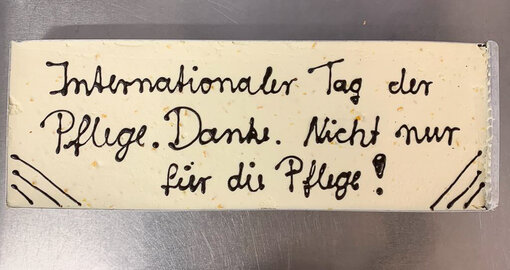 Internationaler Tag der
Pflege. Danke. Nicht nur
für die Pflege!